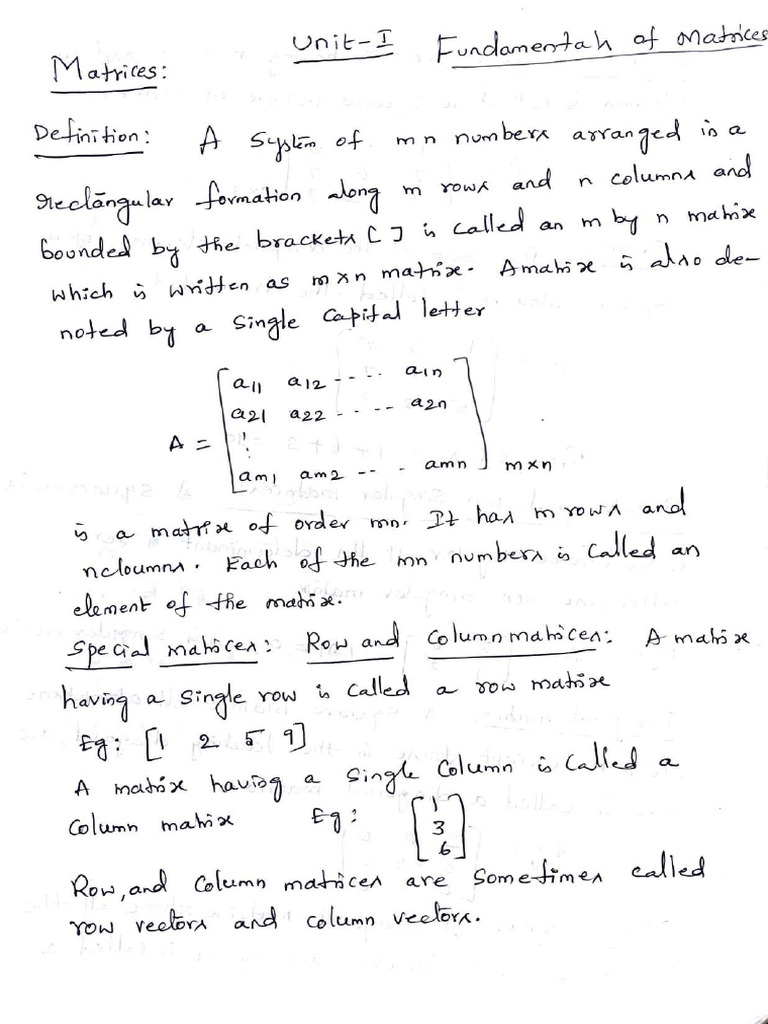 Unit-I Fundamentals of Matrices
Matrices:
Definition: A System of mn numbers arranged in a
rectangular formation along m rows and n columns and
bounded by the brackets [ ] is called an m by n matrix
which is written as m×n matrix. A matrix is also de-
noted by a single capital letter
a11 a12 ----- a1n
a21 a22 ----- a2n
A = ⋮
am1 am2 --- amn m×n
is a matrix of order mn. It has m rows and
ncloumns. Each of the mn numbers is called an
element of the matrix.
Special matrices: Row and Column matrices: A matrix
having a single row is called a row matrix
Eg: [1 2 5 9]
A matrix having a single column is called a
Column matrix Eg: [1
3
6]
Row, and Column matrices are Sometimes called
row vectors and column vectors.